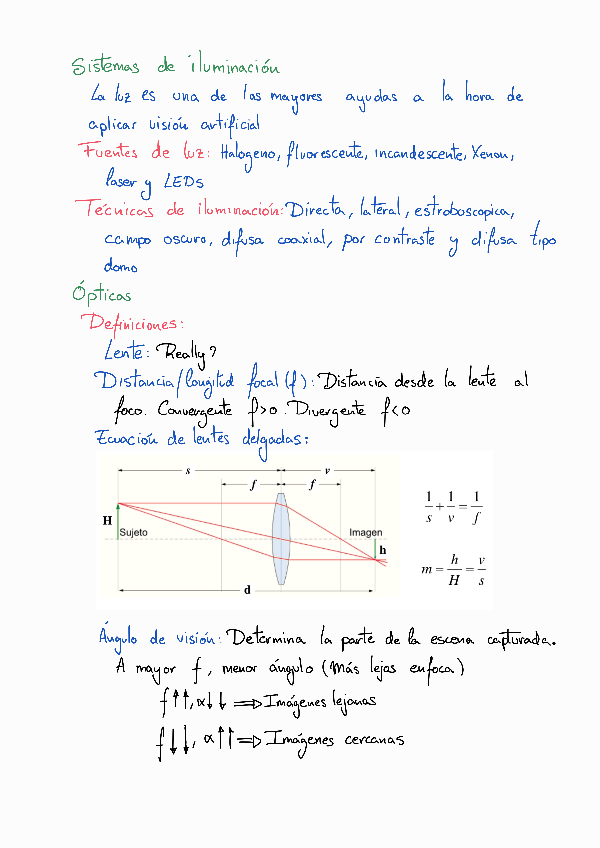 Sistemas de iluminación
La luz es una de las mayores ayudas a la hora de
aplicar visión artificial
Fuentes de luz: Halogeno, fluorescente, incandescente, Xenon,
laser y LEDs
Técnicas de iluminación: Directa, lateral, estroboscopica,
campo oscuro, difusa coaxial, por contraste y difusa tipo
domo
Ópticas
Definiciones:
Lente: Really?
Distancia/longitud focal (f): Distancia desde la lente al
foco. Convergente f>0. Divergente f<0
Ecuación de lentes delgadas:
s v
f f
H Sujeto Imagen h
d
1/s + 1/v = 1/f
m = h/H = v/s
Ángulo de visión: Determina la parte de la escena capturada.
A mayor f, menor ángulo (Más lejas enfoca)
f↑↑, α↓↓ ⇒ Imágenes lejanas
f↓↓, α↑↑ ⇒ Imágenes cercanas